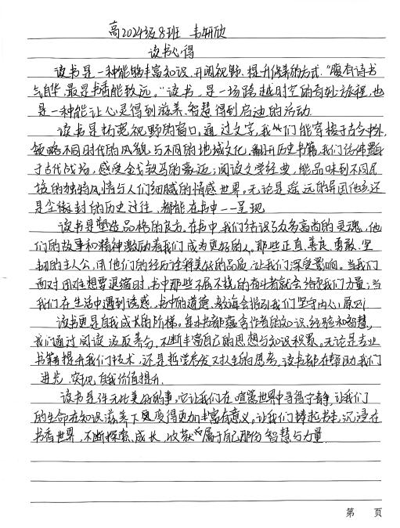 高2024级8班 韦妍欣
读书心得
读书是一种能够丰富知识、开阔视野、提升修养的方式，“腹有诗书
气自华，最是书香能致远。”读书，是一场跨越时空的奇妙旅程，也
是一种能让心灵得到滋养、智慧得到启迪的活动。
读书是拓宽视野的窗口，通过文字，我们能穿梭于古今中外，
领略不同时代的风貌与不同的地域文化，翻开历史书籍，我们仿佛置身
于古代战场，感受金戈铁马的豪迈；阅读文学经典，能品味到不同民
族的独特风情与人们细腻的情感世界，无论是遥远的异国他乡还
是尘封的历史过往，都能在书中一一呈现。
读书是塑造品格的良方，在书中，我们结识了众多高尚的灵魂，他
们的故事和精神激励着我们成为更好的人，那些正直、善良、勇敢、坚
韧的主人公，用他们的经历诠释美好的品质，让我们深受影响。当我们
面对困难想要退缩时，书中那些不屈不挠的奋斗者就会给予我们力量；当
我们在生活中遇到诱惑，书中的道德教诲会指引我们坚守内心原则
读书更是自我成长的阶梯。每本书都蕴含作者的知识、经验和智慧，
我们通过阅读、反复思考，不断丰富自己的思想与知识积累，无论是专业
书籍提升我们技术，还是哲学启发对人生的思考，读书都在帮助我们
进步，实现自我价值提升。
读书是件无比美好的事，它让我们在喧嚣世界中寻得宁静，让我们
的生命在知识滋养下变得更加丰富有意义，让我们捧起书本，沉浸在
书香世界，不断探索、成长，收获属于自己那份智慧与力量
第 页